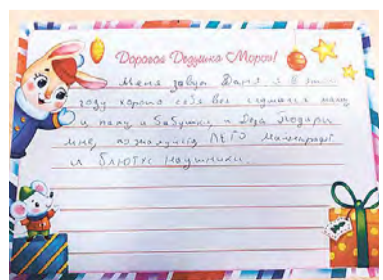 Дорогой Дедушка Мороз!
Меня зовут Даня, я в этом
году хорошо себя вел слушался маму
и папу и бабушку, и Деда Подари
мне, пожалуйста Лего Майнкрафт
и блютус наушники.